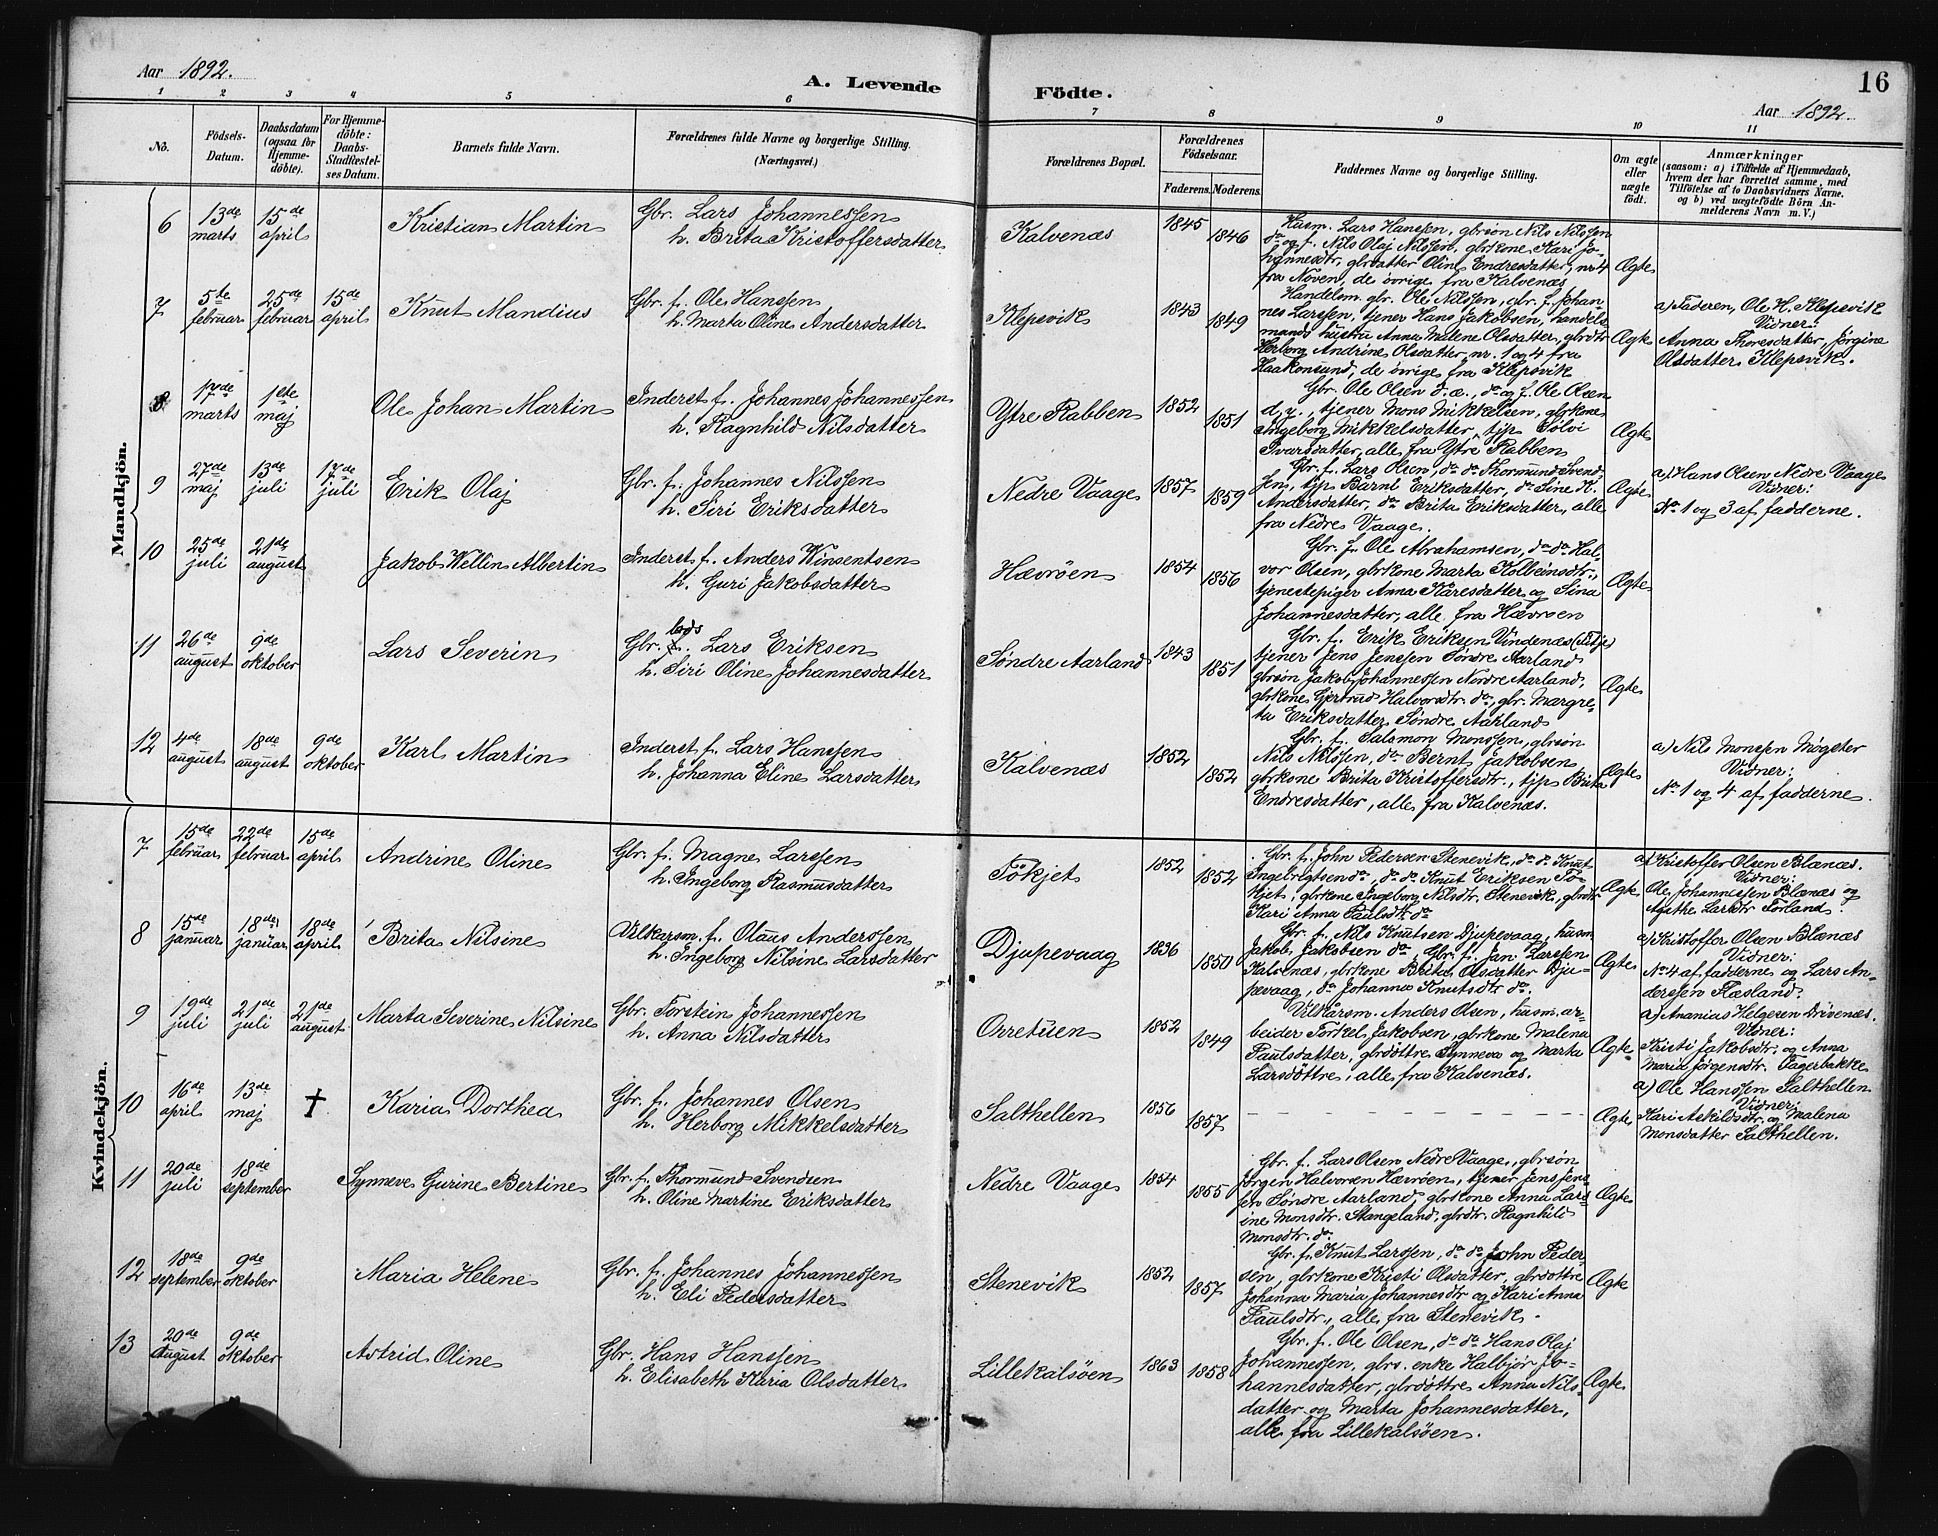 16
Aar 1892.
A. Levende Födte.
Aar 1892.
1 2 3 4 5 6 7 8 9 10 11
No.
Födsels-
Datum.
Daabsdatum
(ogsaa for
Hjemme-
döbte).
For Hjemme-
döbte:
Daabs-
Stadfæstel-
ses Datum.
Barnets fulde Navn.
Forældrenes fulde Navne og borgerlige Stilling.
(Næringsvei.)
Forældrenes Bopæl.
Forældrenes
Födselsaar.
Faderens. Moderens.
Faddernes Navne og borgerlige Stilling.
Om ægte
eller
uægte
födt.
Anmærkninger
(saasom: a) i Tilfælde af Hjemmedaab,
hvem der har forrettet samme, med
Tilföielse af to Daabsvidners Navne.
og b) ved uægtefödte Börn An-
melderens Navn m. V.)
Mandkjön.
6
13de
marts
15de
april
Kristian Martin
Gbr. Lars Johannessen
h. Brita Kristoffersdatter
Kalvenæs
1845
1846
Husm. Lars Hanssen, gbrsön Nils Nilssen
do og f. Nils Olaj Nilssen, gbrkone Kari Jo-
hannesdtr, gbrdatter Oline Endresdatter, nr 4
fra Noven, de övrige fra Kalvenæs
Ægte
7
5te
februar
25de
februar
15de
april
Knut Mandius
Gbr. f. Ole Hanssen
h. Marta Oline Andersdatter
Klepsvik
1843
1849
Handelsm. gbr. Ole Nilssen, gbr. f. Johan-
nes Larssen, tjener Hans Jakobsen, handels-
mands hustru Anna Malene Olsdatter, gbrdtr
Herborg Andrine Olsdatter, nr. 1 og 4 fra
Haakonsund, de övrige fra Klepsvik
Ægte
a) Faderen, Ole H. Klepsvik
Vidner:
Anna Thoresdatter, Jörgine
Olsdatter Klepsvik.
8
17de
marts
1ste
maj
Ole Johan Martin
Inderst f. Johannes Johannessen
h. Ragnhild Nilsdatter
Ytre Rabben
1852
1851
Gbr. Ole Olsen d. æ., do og f. Ole Olsen
d. y., tjener Mons Mikkelsen, gbrkone
Ingeborg Mikkelsdatter, tjp Sölvi
Ivarsdatter, alle fra Ytre Rabben
Ægte
9
27de
maj
13de
juli
17de
juli
Erik Olaj
Gbr. f. Johannes Nilssen
h. Siri Eriksdatter
Nedre Vaage
1857
1859
Gbr. f. Lars Olsen, do do Thormund Svend-
sen, tjp Barnl Eriksdatter, do Sine K.
Andersdatter, do Brita Eriksdatter, alle
fra Nedre Vaage.
Ægte
a) Hans Olsen Nedre Vaage
Vidner:
No 1 og 3 af fadderne.
10
25de
juli
21de
august
Jakob Wellin Albertin
Inderst f. Anders Winsentsen
h. Guri Jakobsdatter
Hævröen
1854
1856
Gbr. f. Ole Abrahamsen, do do Hal-
vor Olsen, gbrkone Marta Kolbeinsdtr.,
tjenestepiger Anna Kåresdatter og Sina
Johannesdatter, alle fra Hævröen
Ægte
11
26de
august
9de
oktober
Lars Severin
Gbr. lods Lars Eriksen
h. Siri Oline Johannesdatter
Söndre Aarland
1843
1851
Gbr. f. Erik Eriksen Vindenæs
tjener Jens Jenssen Söndre Aarland
gbrsön Jakob Johannessen Nordre Aarland,
gbrkone Gjertrud Halvorsdtr. do, gbr. Margre-
ta Eriksdatter Söndre Aarland
Ægte
12
4de
august
18de
august
9de
oktober
Karl Martin
Inderst f. Lars Hanssen
h. Johanna Eline Larsdatter
Kalvenæs
1852
1852
Gbr. f. Salomon Monssen, gbrsön
Nils Nilssen, do Bernt Jakobsen
gbrkone Brita Kristoffersdtr., tjp Brita
Endresdatter, alle fra Kalvenæs.
Ægte
a) Nils Monssen Mögster
Vidner:
No 1 og 4 af fadderne.
Kvindekjön.
7
15de
februar
22de
februar
15de
april
Andrine Oline
Gbr. f. Magne Larssen
h. Ingeborg Rasmusdatter
Tökjet
1852
1852
Gbr. f. John Pedersen Stenevik, do do Knut
Ingebrigtsen do, do do Knut Eriksen Tö-
kjet, gbrkone Ingeborg Nilsdtr. Stenevik, gbrdtr
Kari Anna Paulsdtr do
Ægte
a) Kristoffer Olsen Blænæs.
Vidner:
Ole Johannessen Blænæs og
Agathe Larsdtr Forland.
8
15de
januar
18de
januar
18de
april
Brita Nilsine
Vilkaarsm. f. Olaus Anderssen
h. Ingeborg Nilsine Larsdatter
Djupevaag
1836
1850
Gbr. f. Nils Knutsen Djupevaag, husm.
Jakob Jakobsen do, Gbr. f. Jan Larssen
Kalvenæs, gbrkone Brita Olsdatter Dju-
pevaag, do Johanna Knutsdtr do.
Ægte
a) Kristoffer Olsen Blænæs
Vidner:
No 4 af fadderne og Lars An-
derssen Flæsland.
9
19de
juli
21de
juli
21de
august
Marta Severine Nilsine
Gbr. Torstein Johannessen
h. Anna Nilsdatter
Orretuen
1852
1849
Vilkårsm. Anders Olsen, husm. ar-
beider Torkel Jakobsen, gbrkone Malena
Paulsdatter, gbrdöttre Synneva og Marta
Larsdöttre, alle fra Kalvenæs.
Ægte
a) Ananias Helgesen Drivenæs.
Vidner:
Kristi Jakobsdtr. og Anna
Maria Jörgensdtr. Fagerbakke
10
16de
april
13de
maj
†
Karia Dorthea
Gbr. f. Johannes Olsen
h. Herborg Mikkelsdatter
Salthellen
1856
1857
– – – – – – – –
Ægte
a) Ole Hanssen Salthellen
Vidner:
Kari Askildsdtr. og Malena
Monsdatter Salthellen.
11
20de
juli
18de
september
Synneve Gurine Bertine
Gbr. f. Thormund Svendsen
h. Oline Martine Eriksdatter
Nedre Vaage
1854
1855
Gbr. f. Lars Olsen Nedre Vaage, gbrsön
Jörgen Halvorsen Hævröen, tjener Jens Jens-
sen Söndre Aarland, gbrkone Anna Lars-
ine Monsdtr. Stangeland, gbrdtr. Ragnhild
Monsdtr. do.
Ægte
12
18de
september
9de
oktober
Maria Helene
Gbr. f. Johannes Johannessen
h. Eli Pedersdatter
Stenevik
1852
1857
Gbr. f. Knut Larssen, do do John Peder-
sen, gbrkone Kristi Olsdatter, gbrdöttre
Johanna Maria Johannesdtr og Kari Anna
Paulsdtr., alle fra Stenevik.
Ægte
13
20de
august
9de
oktober
Astrid Oline
Gbr. Hans Hanssen
h. Elisabeth Karia Olsdatter
Lillekalsöen
1863
1858
Gbr. f. Ole Olsen, do do Hans Olaj
Johannessen, gbrs. enke Halbjör Jo-
hannesdatter, gbrdöttre Anna Nils-
datter og Marta Johannesdatter,
alle fra Lillekalsöen.
Ægte